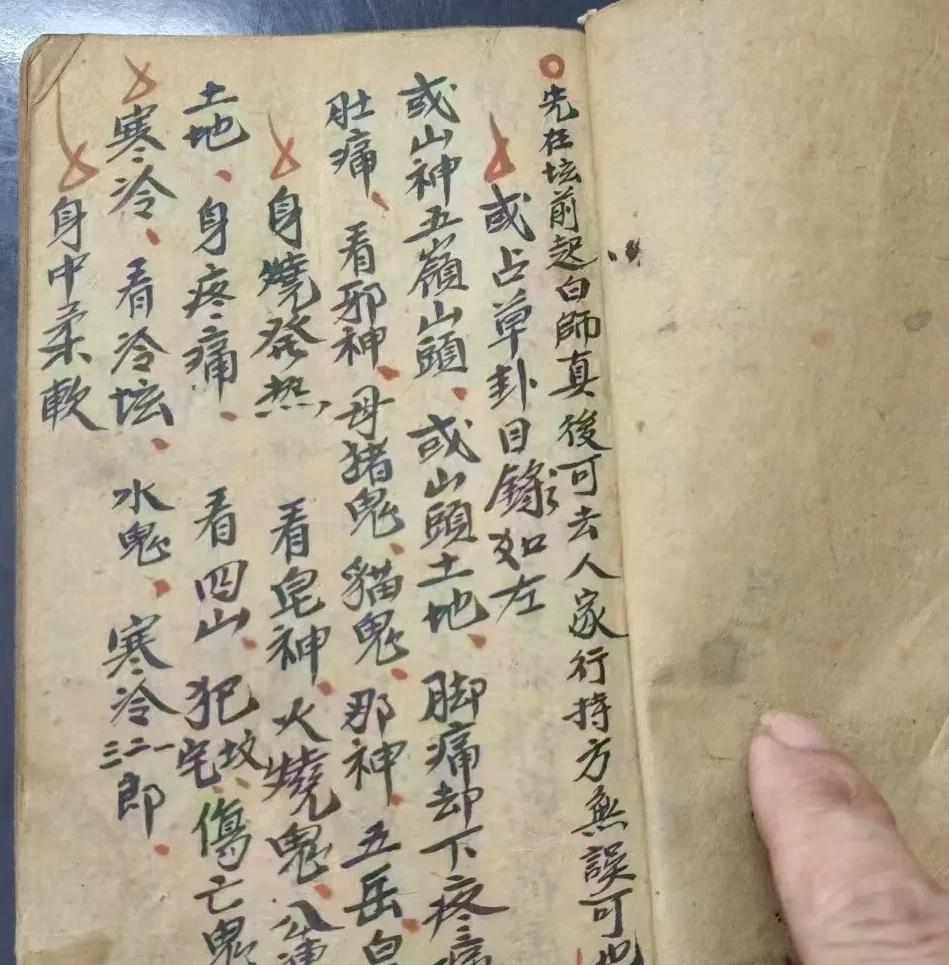 先在坛前起白師真後可去人家行持方無誤可也
或占草卦目錄如左
或山神五嶺山頭、或山頭土地、脚痛却下疼痛
肚痛、看邪神、母猪鬼、貓鬼、那神、五岳白
身燒発热 看皂神、火燒鬼、公
土地、身疼痛、看四山、犯坟宅、傷亡鬼
寒冷、看冷坛、水鬼、寒冷一二三郎、
身中柔軟